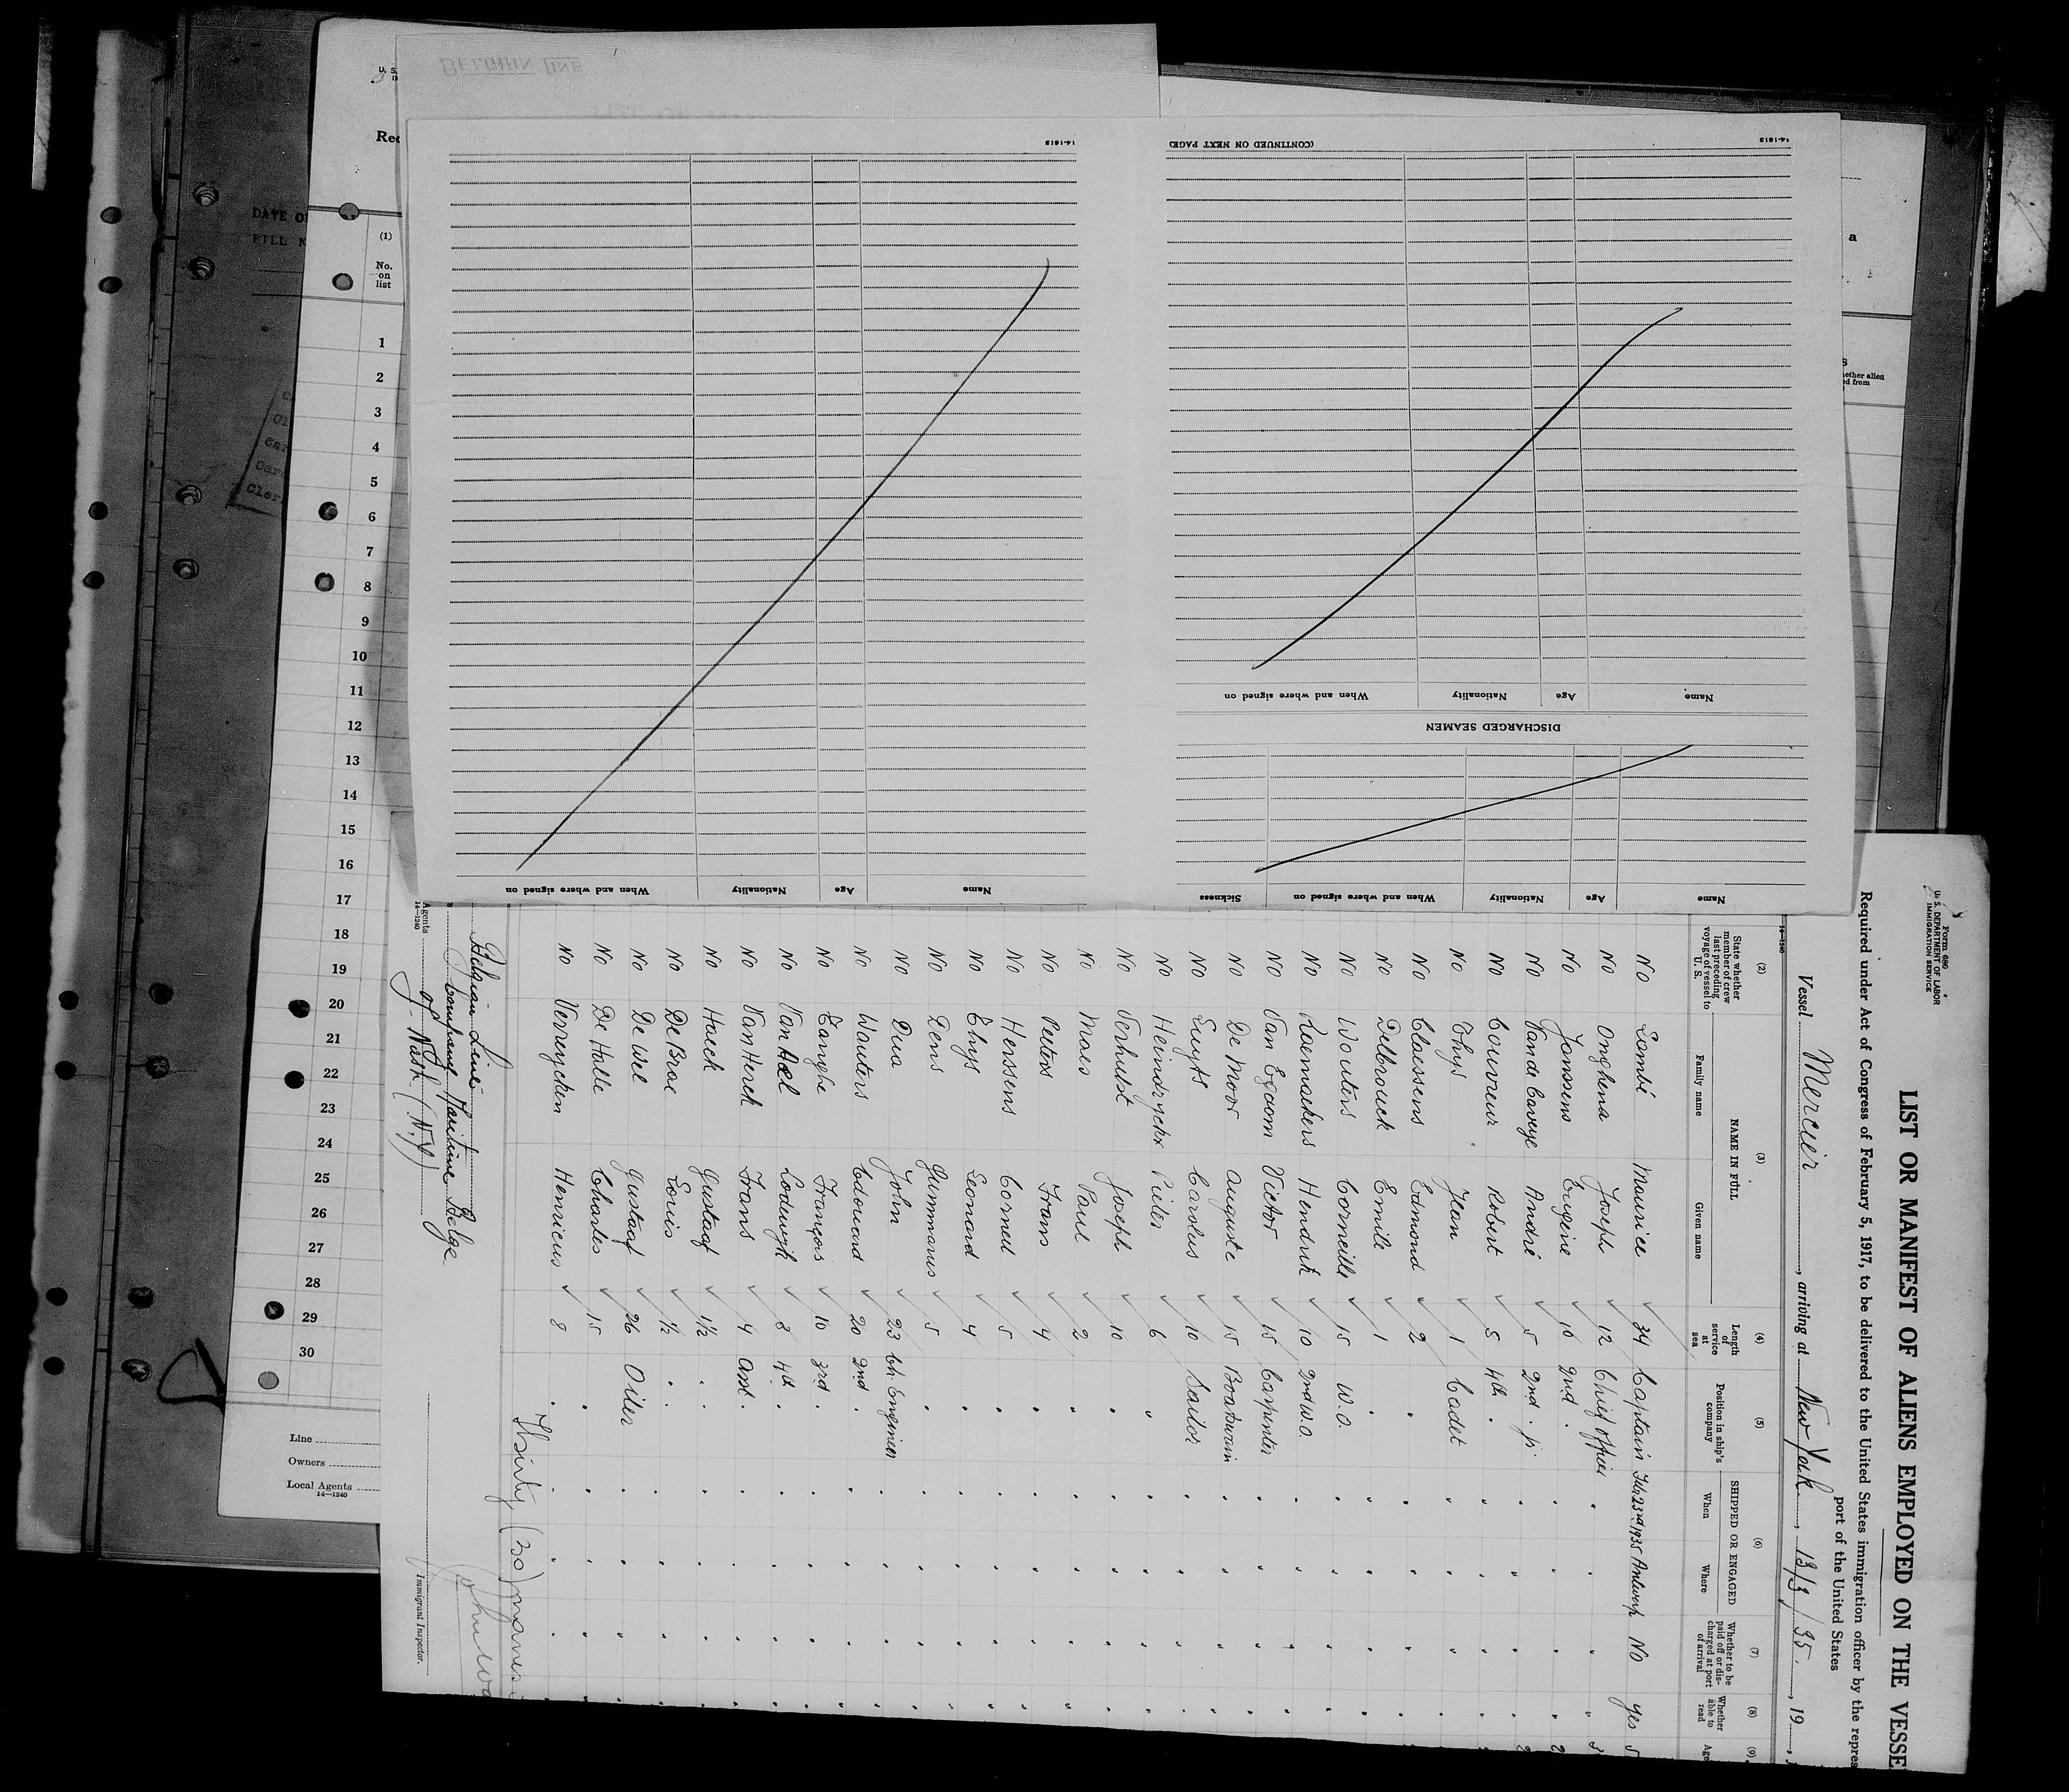 Form 680
U. S. DEPARTMENT OF LABOR
IMMIGRATION SERVICE
LIST OR MANIFEST OF ALIENS EMPLOYED ON THE VESSE
Required under Act of Congress of February 5, 1917, to be delivered to the United States immigration officer by the repres
port of the United States
Vessel Mercier, arriving at New York, 13/3/35, 19
14-1240
(2) (3) (4) (5) (6) (7) (8) (9)
State whether member of crew last preceding voyage of vessel to U. S.
NAME IN FULL
Family name Given name
Length of service at sea
Position in ship's company
SHIPPED OR ENGAGED
When Where
Whether to be paid off or discharged at port of arrival
Whether able to read
Age
No Lambé Maurice 34 Captain Feb 23rd 1935 Antwerp No yes
No Onghena Joseph 12 Chief officer
No Janssens Eugène 10 2nd
No Van de Caveye André 5 2nd
No Couvreur Robert 5 4th
No Thys Jean 1 Cadet
No Claessens Edmond 2
No Delbrouck Emile 1
No Wouters Corneille 15 W.O.
No Roemaekers Hendrik 10 2nd W.O.
No Van Egdom Victor 15 Carpenter
No De Moor Auguste 15 Boatswain
No Luyts Carolus 10 Sailor
No Heindryckx Pieter 6
No Verhulst Joseph 10
No Maes Paul 2
No Peeters Frans 4
No Herssens Corneel 5
No Thys Leonard 4
No Dens Gummarus 5
No Dua John 23 Ch. Engineer
No Wauters Edouard 20 2nd
No Tanghe François 10 3rd
No Van Hoel Lodewyk 8 4th
No Van Herck Frans 4 Asst.
No Haeck Gustaaf 1½
No De Brae Louis ½
No De Wel Gustaaf 26 Oiler
No De Halle Charles 15
No Verreycken Henricus 8
Thirty (30) names
Belgian Line
Company Maritime Belge
Agents J. Nash (N.Y)
14-1240
Immigrant Inspector.
14-1613
(CONTINUED ON NEXT PAGE)
14-1613
Name Age Nationality When and where signed on
DISCHARGED SEAMEN
Name Age Nationality When and where signed on Sickness
Name Age Nationality When and where signed on
BELGIAN LINE
U. S.
Rec
DATE OF
BILL N
(1)
No. on list
1
2
3
4
5
6
7
8
9
10
11
12
13
14
15
16
17
18
19
20
21
22
23
24
25
26
27
28
29
30
Line
Owners
Local Agents
14-1240
a
ether alien
ed from